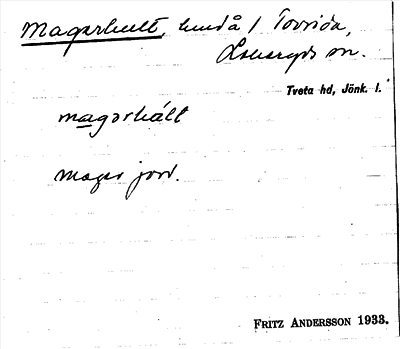 Magerhult, lundå / Torsjöa,
Lekeryds sn.
Tveta hd, Jönk. l.
magərhált
mager jord.
FRITZ ANDERSSON 1933.